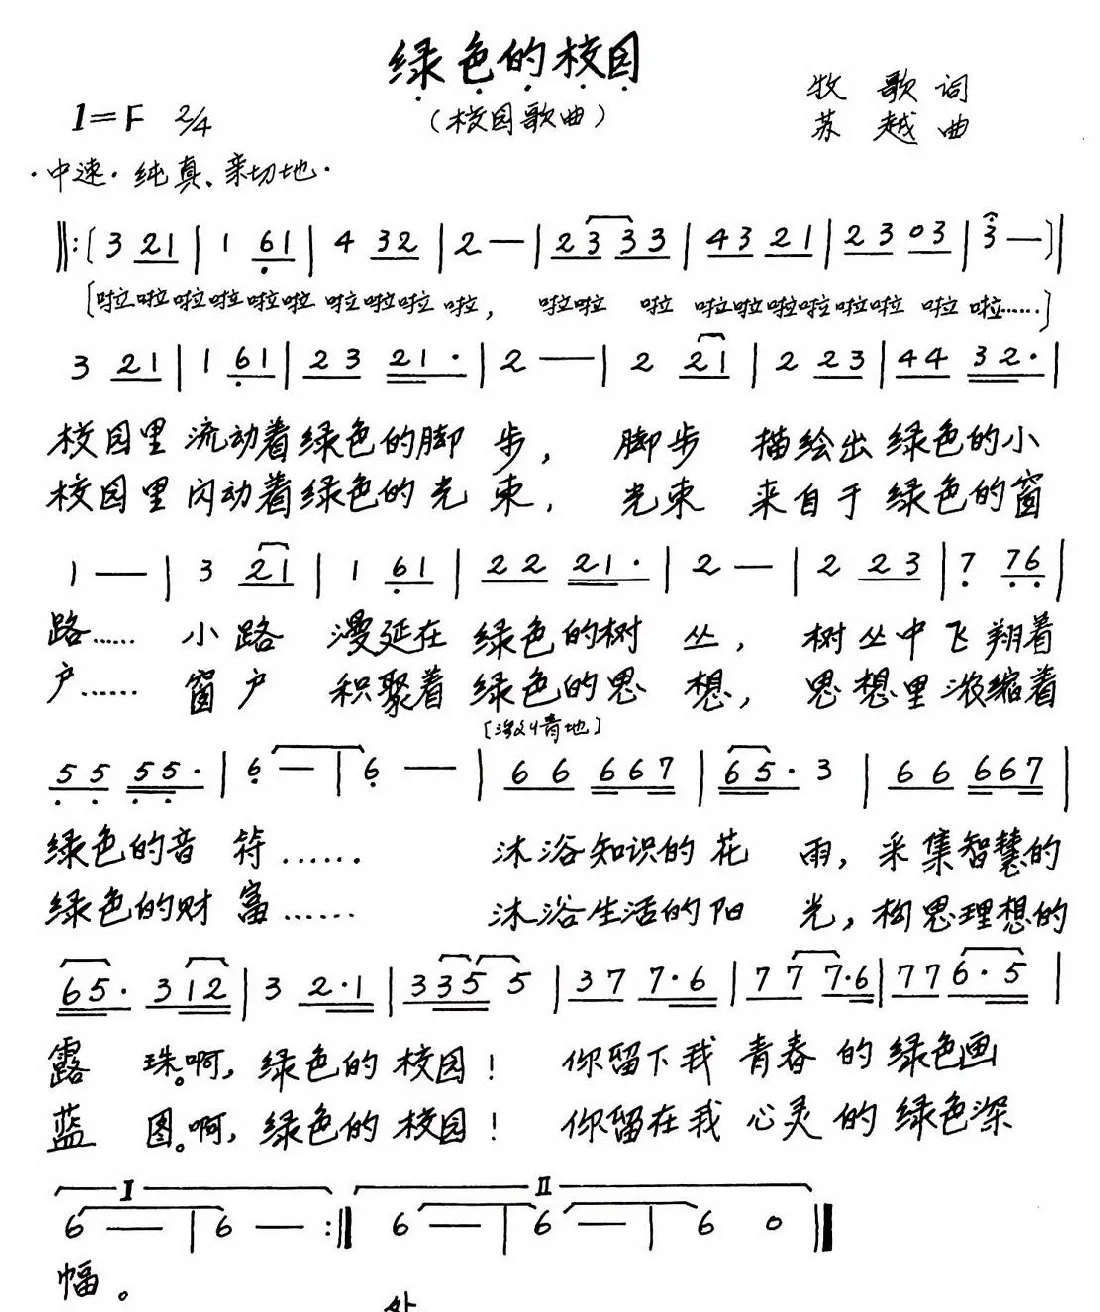 绿色的校园
(校园歌曲)
牧 歌 词
苏 越 曲
1=F 2/4
·中速·纯真、亲切地·
‖:[3 21 | 1 61 | 4 32 | 2 — | 23 33 | 43 21 | 23 03 | 3 —]|
[啦啦啦啦啦啦 啦啦啦 啦, 啦啦 啦 啦啦啦啦啦啦 啦 啦……]
3 21 | 1 61 | 23 21· | 2 — | 2 21 | 2 23 | 44 32· |
校园里 流动着绿色的脚 步, 脚步 描绘出 绿色的小
校园里 闪动着绿色的光 束, 光束 来自于 绿色的窗
1 — | 3 21 | 1 61 | 22 21· | 2 — | 2 23 | 7 76 |
路…… 小路 漫延在 绿色的树 丛, 树丛中飞翔着
户…… 窗户 积聚着 绿色的思 想, 思想里浓缩着
[激情地]
55 55· | 6 — | 6 — | 66 667 | 65· 3 | 66 667 |
绿色的音 符…… 沐浴知识的花 雨, 采集智慧的
绿色的财 富…… 沐浴生活的阳 光, 构思理想的
65· 312 | 3 2·1 | 335 5 | 37 7·6 | 77 7·6 | 77 6·5 |
露 珠。啊, 绿色的校园! 你留下我 青春 的绿色画
蓝 图。啊, 绿色的校园! 你留在我 心灵 的绿色深
I II
6 — | 6 — :‖ 6 — | 6 — | 6 0 ‖
幅。
处